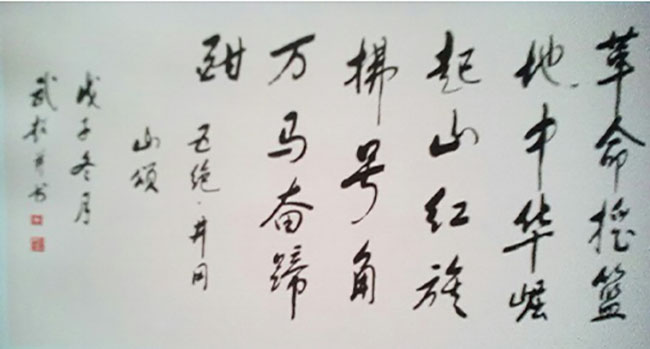 革命摇篮
地中华崛
起山红旗
拂号角
万马奋蹄
酣
五绝·井冈
山颂
戊子冬月
武
书